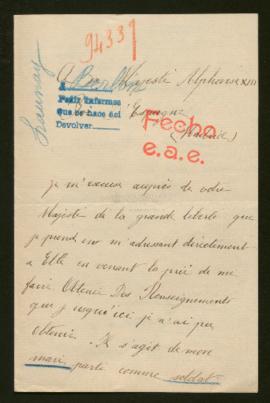 94331
Launay
A Sa Majesté Alphonse XIII
Pedir informes
que se hace así
Devolver
Espagne
(Madrid)
Fecho
e.a.e.
je m'excuse auprès de votre
Majesté de la grande liberté que
je prend en m'adressant directement
à Elle en venant la prié de me
faire Obtenir Des Renseignements
que jusqu'ici je n'ai pu
obtenir. Il s'agit de mon
mari parti comme soldat